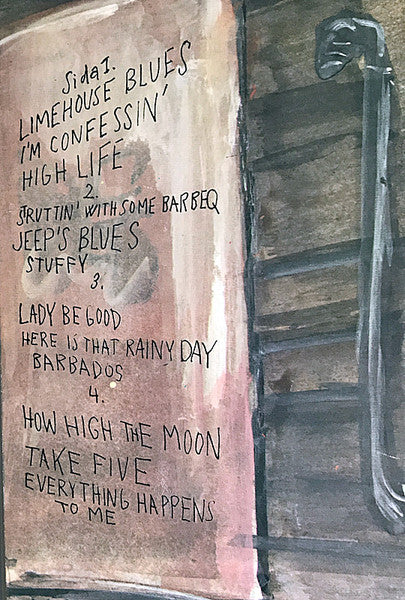 Sida 1.
LIMEHOUSE BLUES
I'M CONFESSIN'
HIGH LIFE
2.
STRUTTIN' WITH SOME BARBEQ
JEEP'S BLUES
STUFFY
3.
LADY BE GOOD
HERE IS THAT RAINY DAY
BARBADOS
4.
HOW HIGH THE MOON
TAKE FIVE
EVERYTHING HAPPENS
TO ME